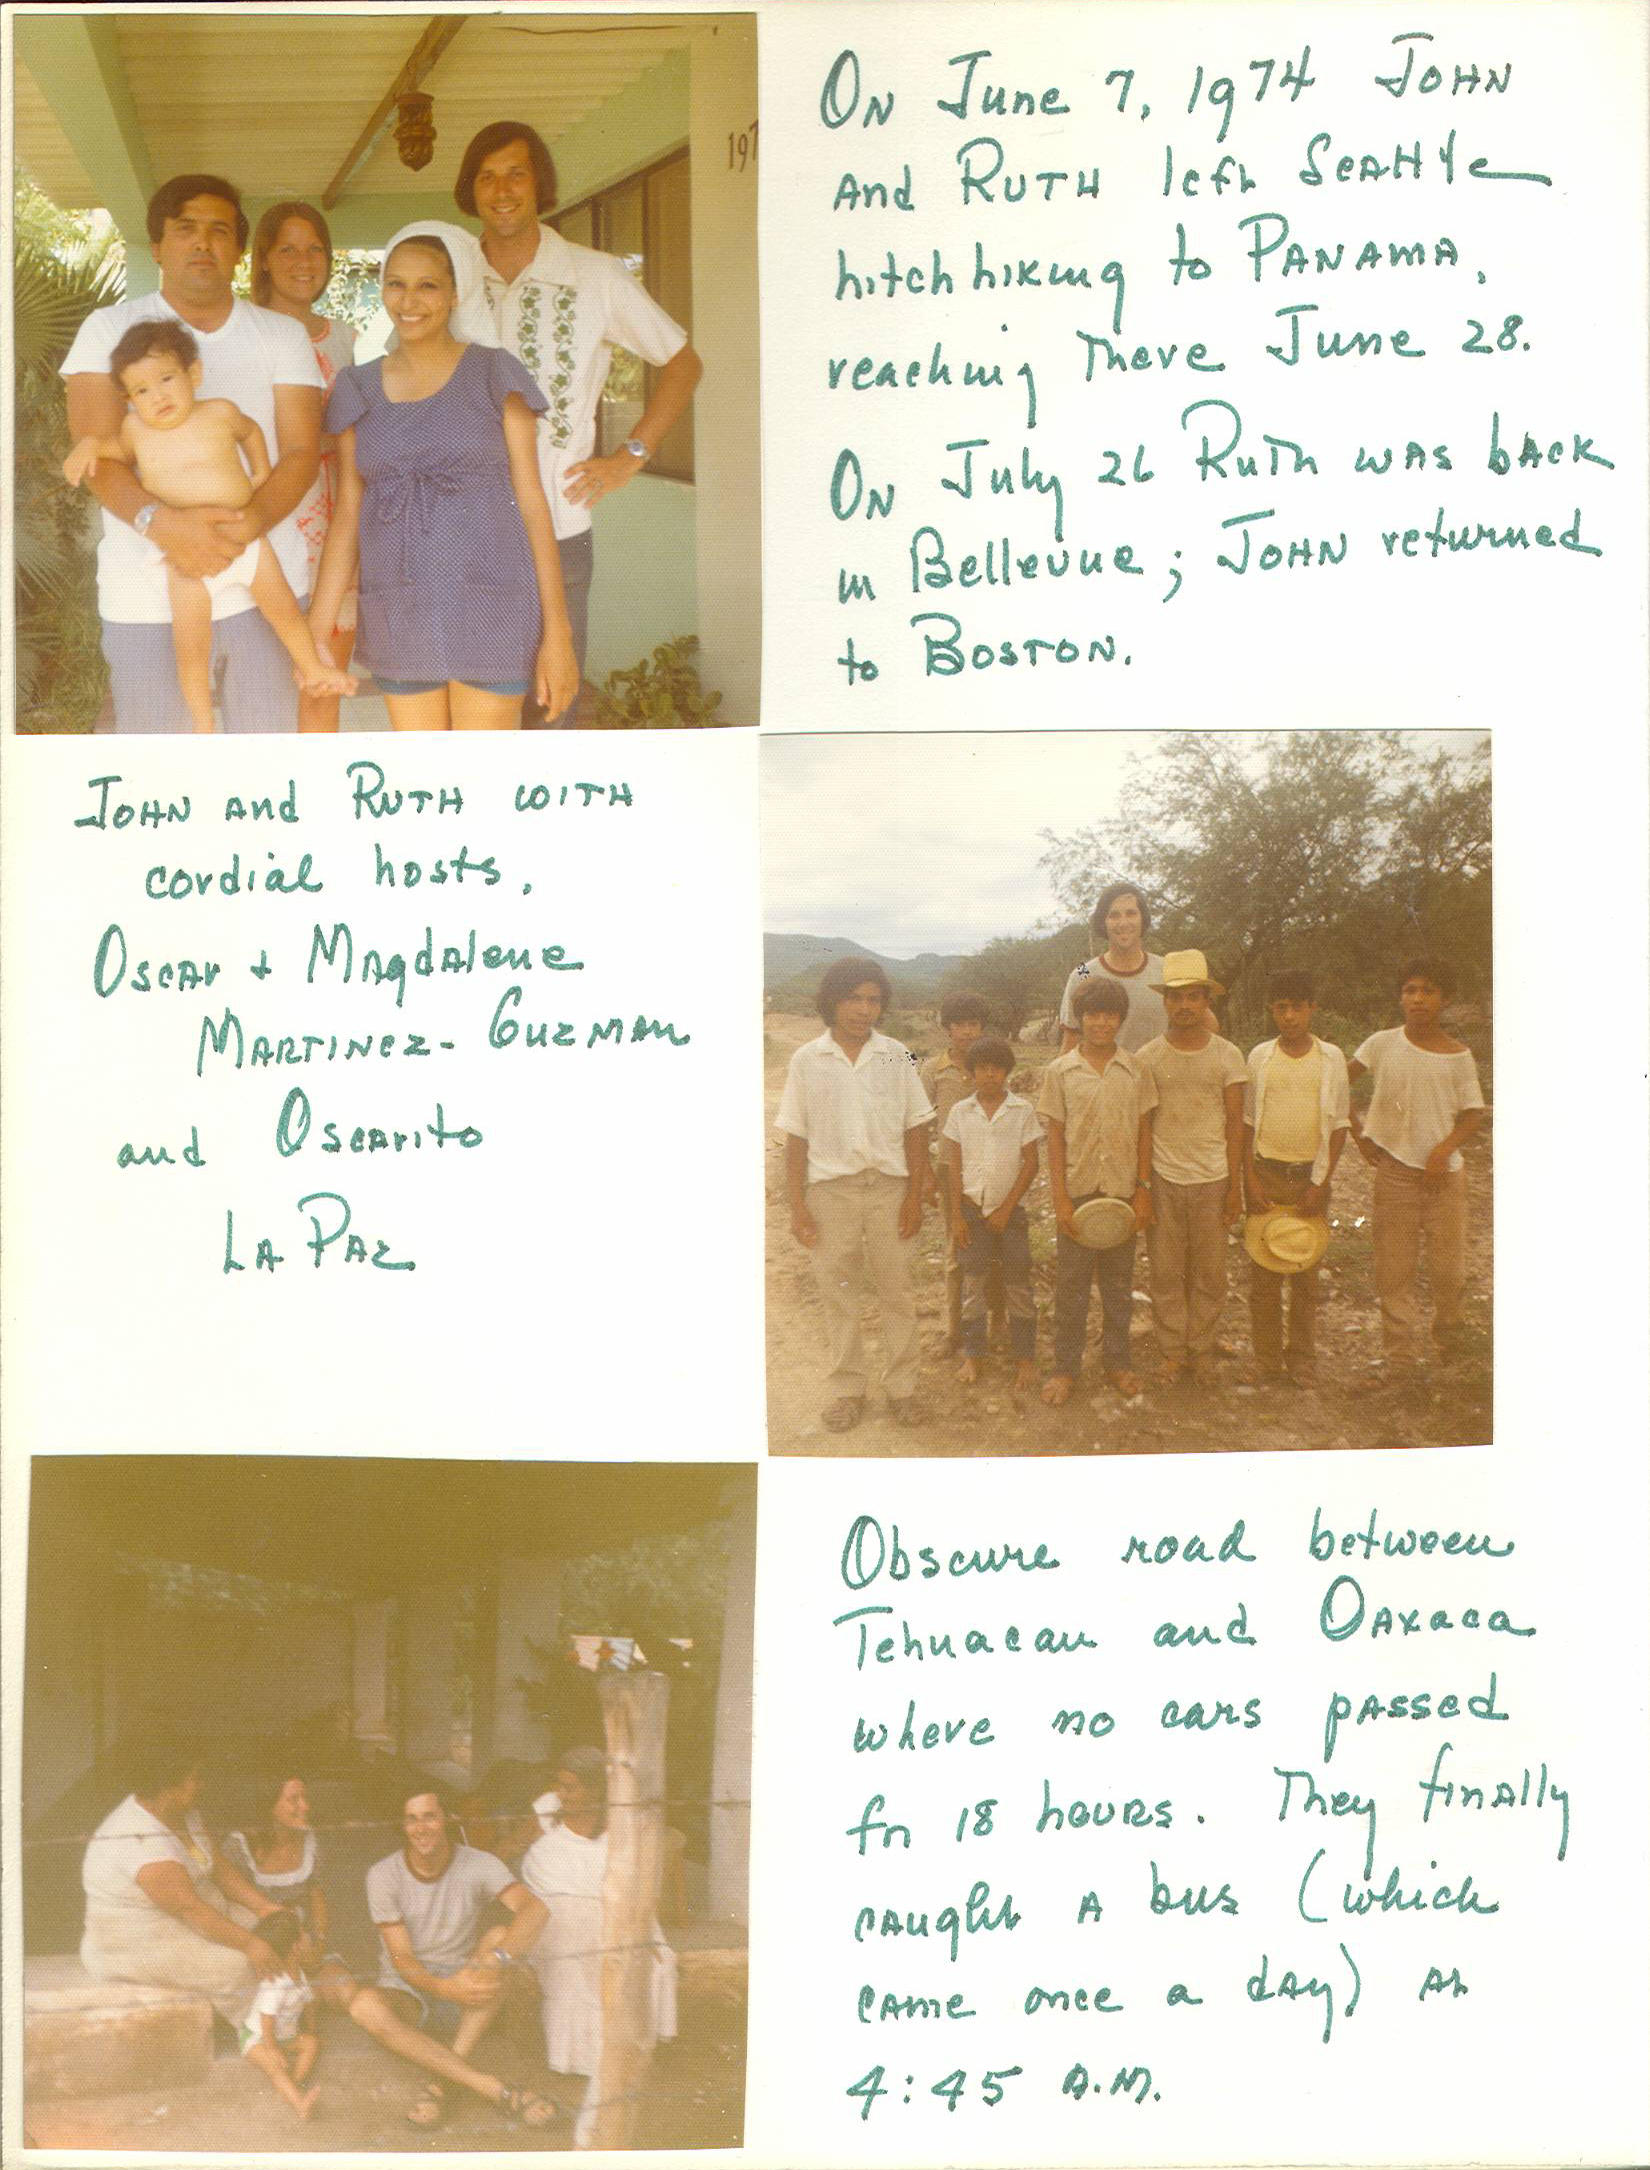 On June 7, 1974 John
and Ruth left Seattle
hitchhiking to Panama,
reaching there June 28.
On July 26 Ruth was back
in Bellevue; John returned
to Boston.
197
John and Ruth with
cordial hosts,
Oscar + Magdalene
Martinez-Guzman
and Oscarito
La Paz
Obscure road between
Tehuacan and Oaxaca
where no cars passed
for 18 hours. They finally
caught a bus (which
came once a day) at
4:45 A.M.